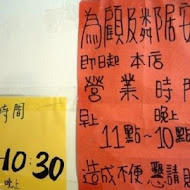 為顧及鄰居安
即日起 本店
營業時間
早上 晚上
11點~10點
造成不便 懇請
時間
10:30
晚上